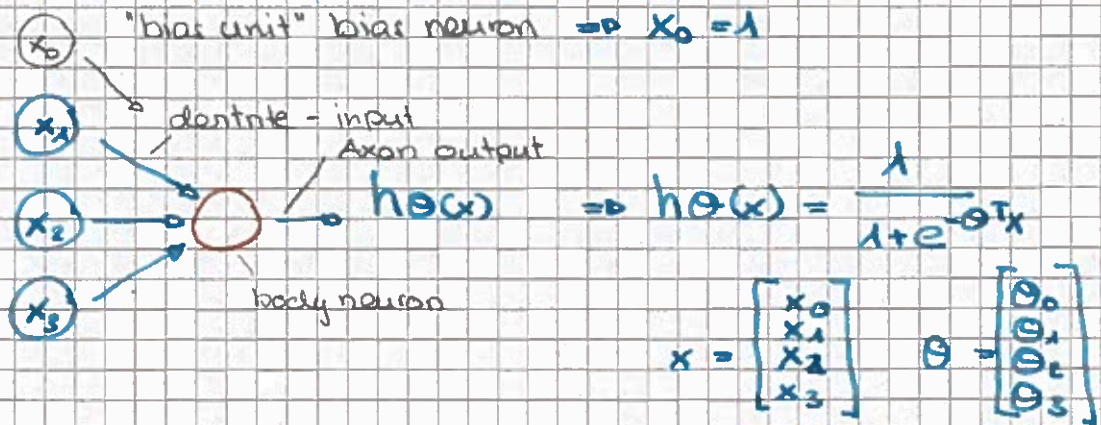 x₀ "bias unit" bias neuron ⇒ x₀ = 1
x₁ dentrite - input
Axon output
x₂ hθ(x) ⇒ hθ(x) = 1 / 1+e^-θᵀx
x₃ body neuron
x = [x₀ x₁ x₂ x₃] θ = [θ₀ θ₁ θ₂ θ₃]